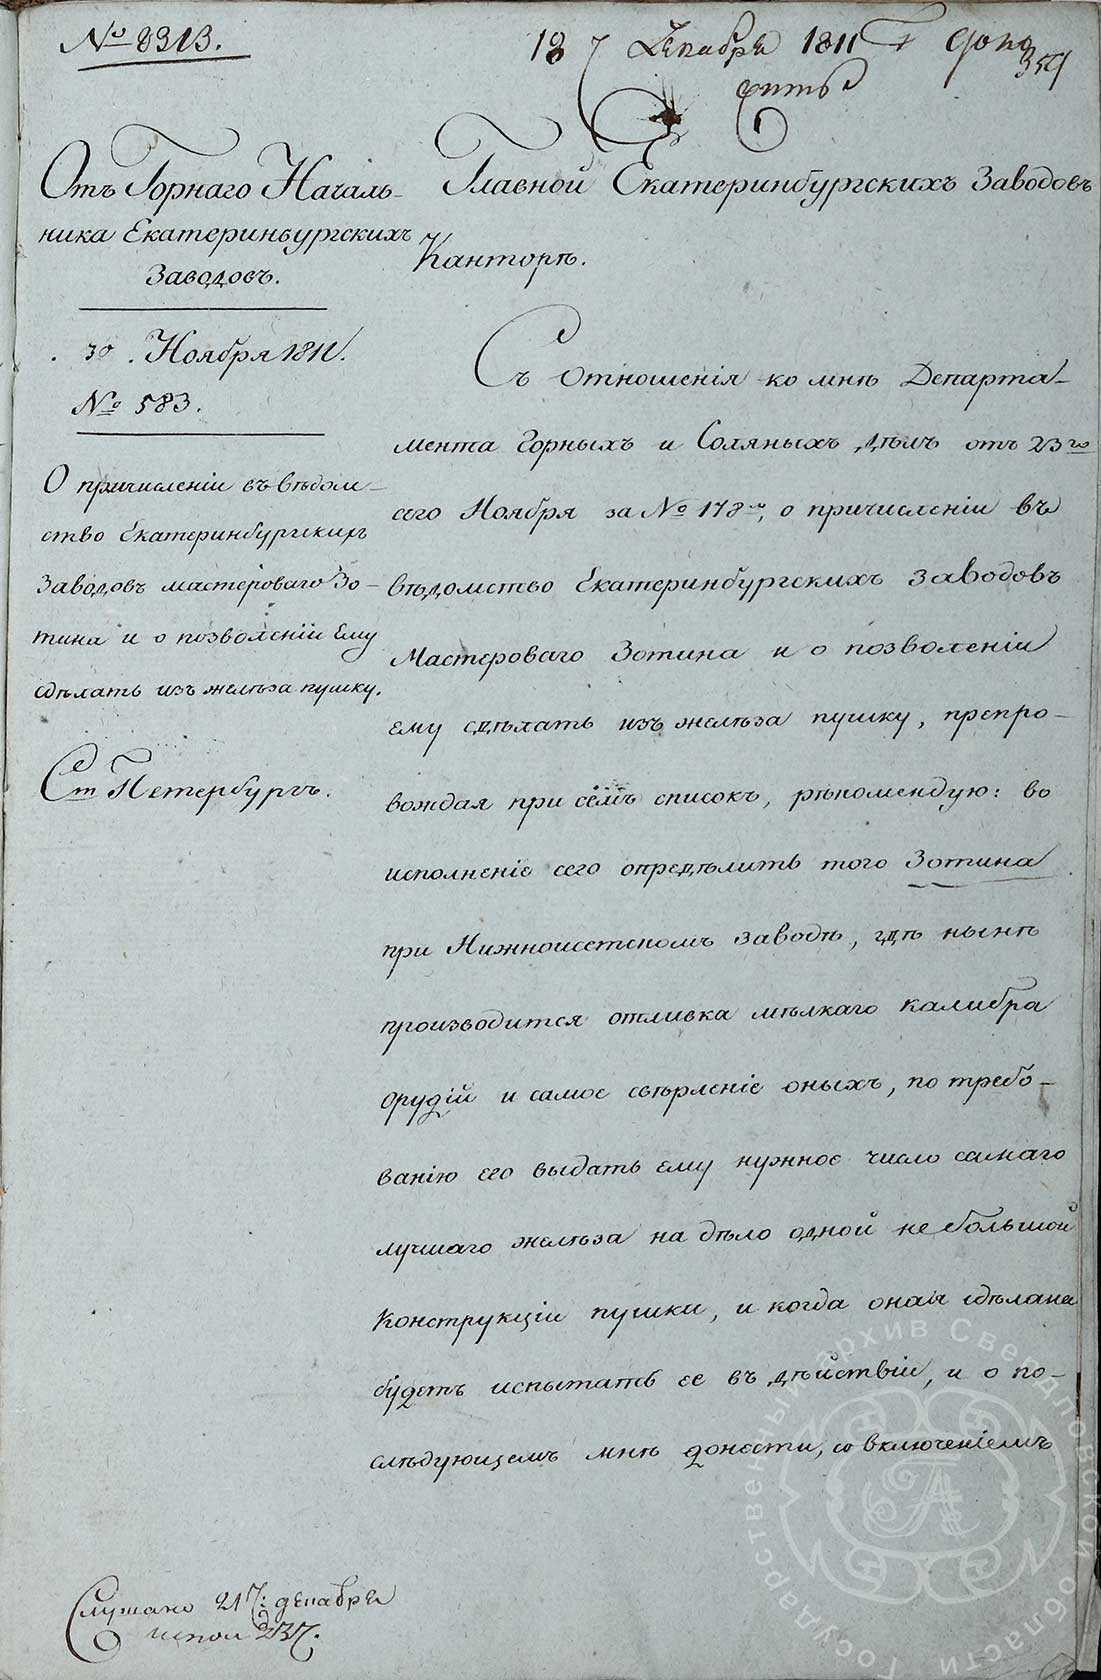 № 8313.
18 Декабря 1811 доло
354
жить
Отъ Горнаго Началь-
ника Екатеринбургскихъ
Заводовъ.
30. Ноября 1811.
№ 583.
О причисленіи въ вѣдом-
ство Екатеринбургскихъ
Заводовъ мастероваго Зо-
тина и о позволеніи Ему
сдѣлать изъ желѣза пушку.
Ст Петербургъ.
Главной Екатеринбургскихъ Заводовъ
Канторѣ.
Съ Отношенія ко мнѣ Департа-
мента Горныхъ и Соляныхъ дѣлъ отъ 23го
сего Ноября за № 178м, о причисленіи въ
вѣдомство Екатеринбургскихъ Заводовъ
Мастероваго Зотина и о позволеніи
ему сдѣлать изъ желѣза пушку, препро-
вождая при сёмъ список, рѣкомендую: во
исполненіе сего опредѣлить того Зотина
при Нижноисетскомъ заводѣ, гдѣ нынѣ
производится отливка мѣлкаго калибра
орудій и самое свѣрленіе оныхъ, по требо-
ванію его выдать ему нужное число самаго
лучшаго желѣза на дѣло одной не большой
Конструкціи пушки, и когда оная сдѣлана
будетъ испытать ее въ дѣйствіи, и о по-
слѣдующемъ мнѣ донести, со включеніемъ
Слушано 21 декабря
испол 237.
Государственный архив Свердловской области